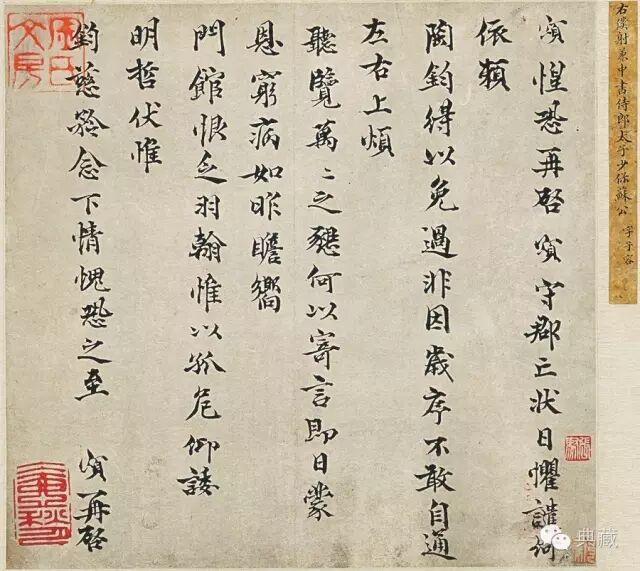 右僕射兼中書侍郎太子少保蘇公 字子容
頌惶恐再啓頌守郡亡狀日懼譴訶
依賴
陶鈞得以免過非因歲序不敢自通
左右上煩
聽覽萬〻之懇何以寄言即日蒙
恩窮病如昨瞻嚮
門館恨乏羽翰惟以孤危仰諉
明哲伏惟
鈞慈矜念下情愧恐之至 頌再啓
典藏